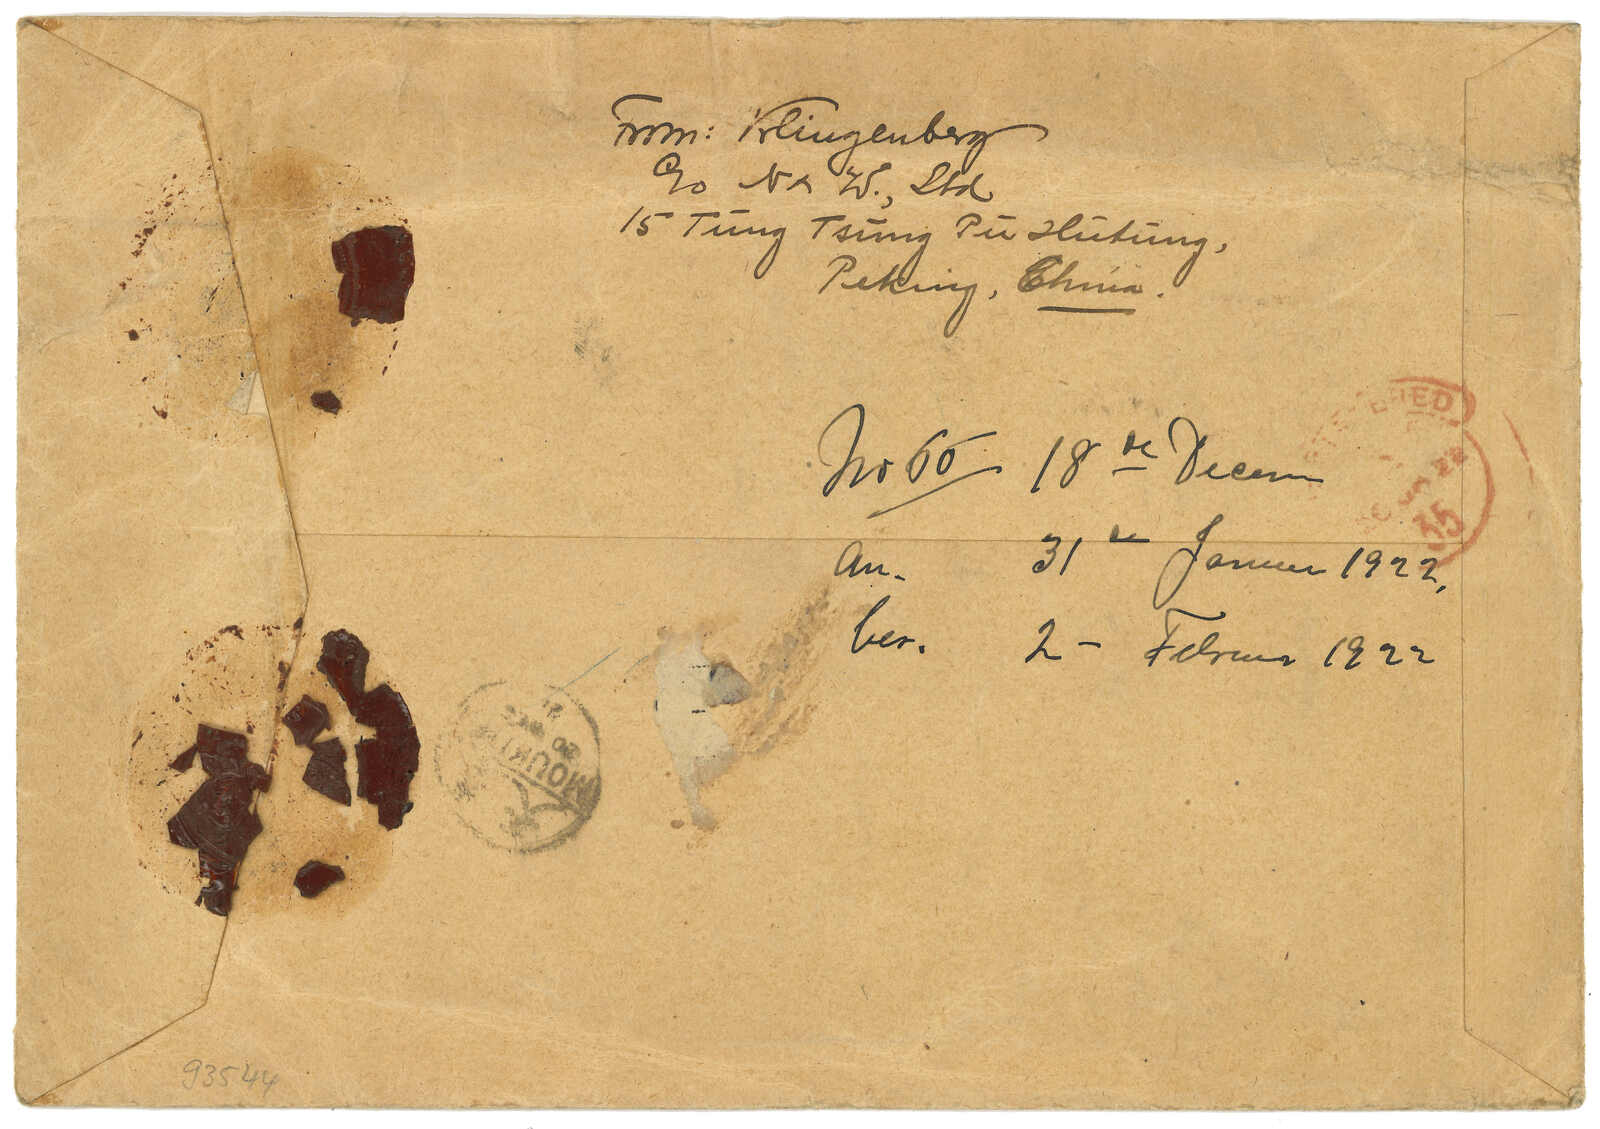 From: Klingenberg
c/o N & W., Ltd
15 Tūng Tsūng Pū Hūtūng,
Peking, China.
No 60 18 te Decem
an. 31 te Januar 1922.
ber. 2 - Februar 1922
22
35
MOUKD
93544